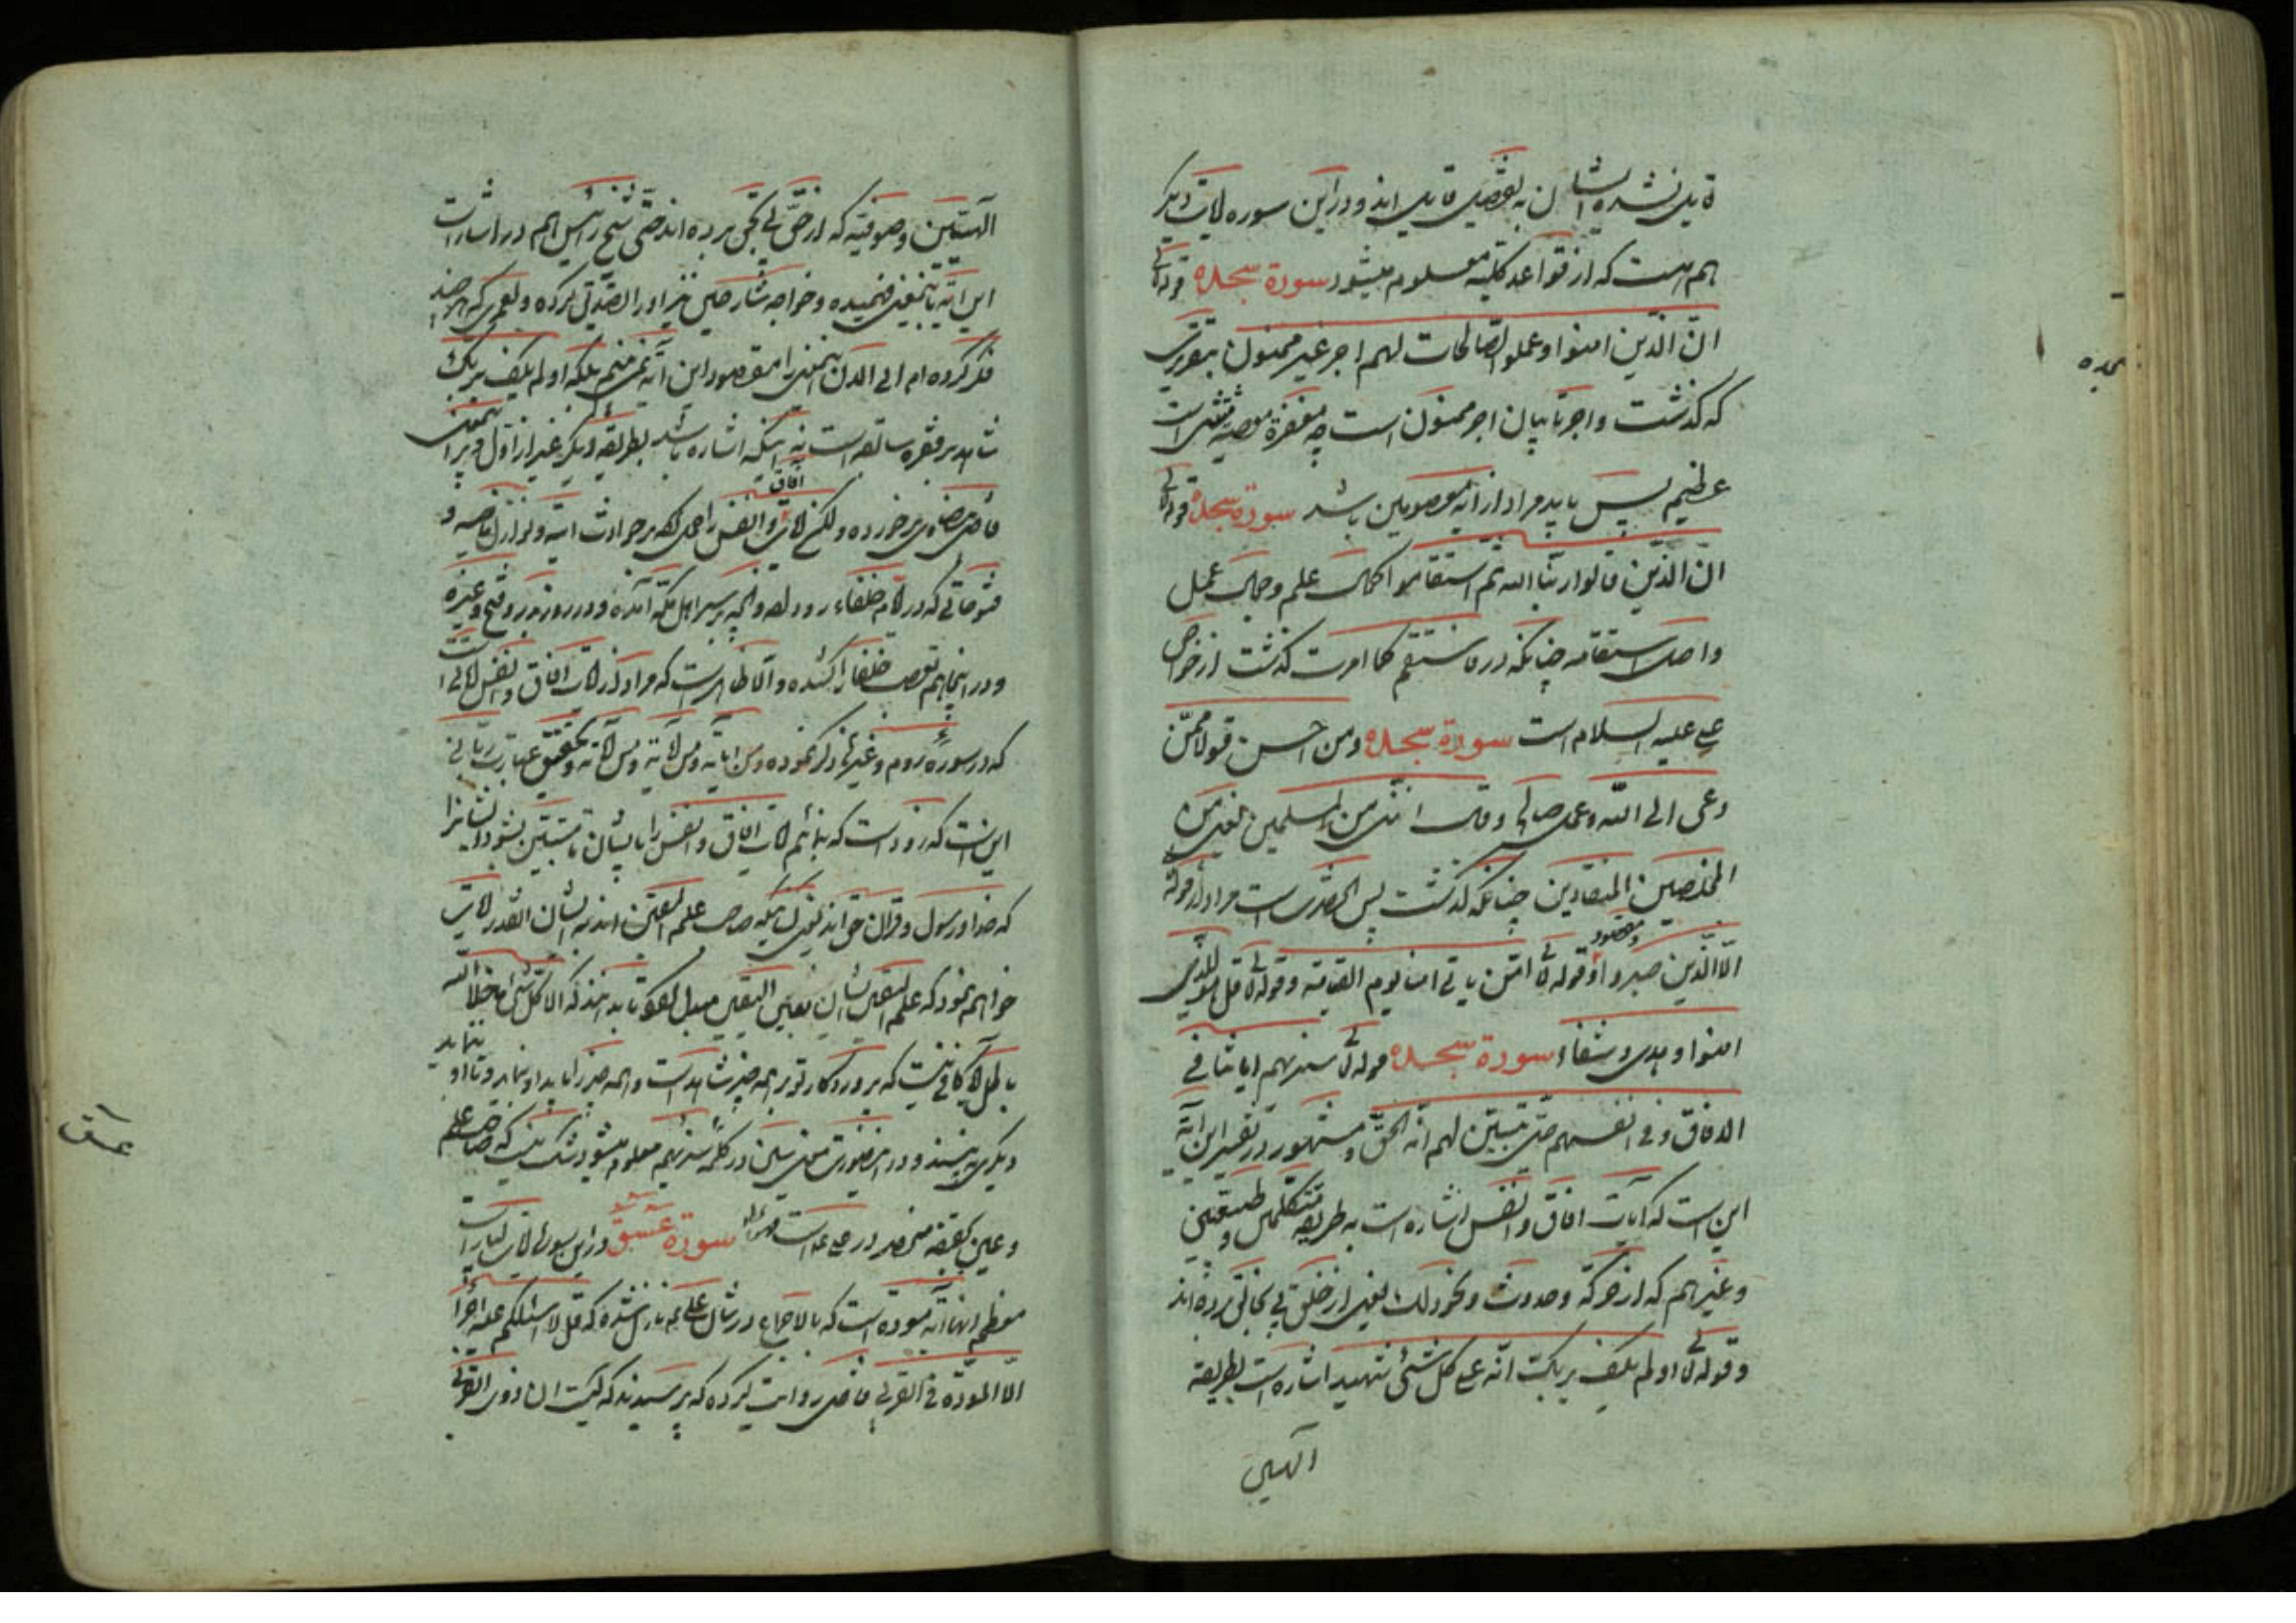 قایل نشده ایشان به تفضیل قایل اند و در این سوره آیات دیگر
هم هست که از قواعد کلیه معلوم میشود سورة سجده قوله تعالی
ان الذین امنوا و عملوا الصالحات لهم اجر غیر ممنون بتقریری
که گذشت و اجر تایبان اجر ممنون است چه مغفرة معصیة منتی است
عظیم پس باید مراد از آیه معصومین باشد سورة سجده قوله تعالی
ان الذین قالوا ربنا الله ثم استقاموا کمال علم و کمال عمل
و اصل استقامه چنانکه در فاستقم کما امرت گذشت از خواص
علی علیه السلام است سورة سجده و من احسن قولا ممّن
دعی الی الله و عمل صالحا و قال اننی من المسلمین یعنی من
المخلصین المنقادین چنانکه گذشت پس الحضرت است مراد از قوله
الا الذین صبروا و مقصود او قوله تعالی امّن یاتی امنا یوم القیامة و قوله تعالی قل هو للذین
امنوا و هدی و شفاء سورة سجده قوله تعالی سنریهم ایاتنا فی
الافاق و فی انفسهم حتی یتبیّن لهم انّه الحقّ و مشهور در تفسیر این آیة
این است که آیات افاق و انفس اشاره است به طریقه متکلمین و طبیعیین
و غیرهم که از حرکة و حدوث و نحو ذلک یعنی از خلق پی بخالق برده اند
و قوله تعالی اولم یکف بربک انّه علی کل شیئ شهید اشاره است بطریقه
الهیین
سجده
الهیین و صوفیّه که از حقّ پی بحق برده اند حتی شیخ رئیس هم در اشارات
این آیه باینمعنی فهمیده و خواجه شارحین نیز او را تصدیق کرده و لعمری که هر چند
فکر کرده ام الی الان اینمعنی را مقصود این آیه نمی فهمم بلکه اولم یکف بربک
شاهد بر فقره سابقه است نه اینکه اشاره باشد بطریقه دیگر غیر از اول و بر اینمعنی
قاضی بیضاوی برخورده و لکن آیات افاق و انفس را حمل کرده بر حوادث آتیه و نوازل ماضیه و
فتوحاتی که در ایام خلفاء رو داده و آنچه بر سر اهل مکه آمده و در روز بدر و فتح و غیره
و در اینجا هم تعصب خلفا را کشیده و الا ظاهر است که مراد از آیات افاق و انفس آیاتی است
که در سورهٔ روم و غیرها ذکر نموده و من ایاته و من آیاته و من آیاته و تحقیق عبارت ربّانی
این است که زود است که بنمائیم آیات افاق و انفس را بایشان تا متبین بشود ایشانرا
که خدا و رسول و قرآن حق اند یعنی اینکه صاحب علم الیقین اند به ایشان انقدر آیات
خواهیم نمود که علم الیقین ایشان بعین الیقین مبدل بشود تا بدانند که الا کل شئ ما خلا الله
باطل آیا کافی نیست که پروردگار تو بر همه چیز شاهد است و همه چیز را باید او بنماید و تا او ننماید
دیگری نه بیند و در اینصورت معنی سین در کلمهٔ سنریهم معلوم میشود شک نیست که صاحب علم
و عین بحقیقة منحصر در علی علیه السلام است سورة عسق در این سوره آیات بسیار است
معظم آنها آیه مودة است که بالاجماع در شان علی ع نازل شده که قل لا اسئلکم علیه اجرا
الا المودّة فی القربی قاضی روایت کرده که پرسیدند که کیست ان ذوی القربی
عسق